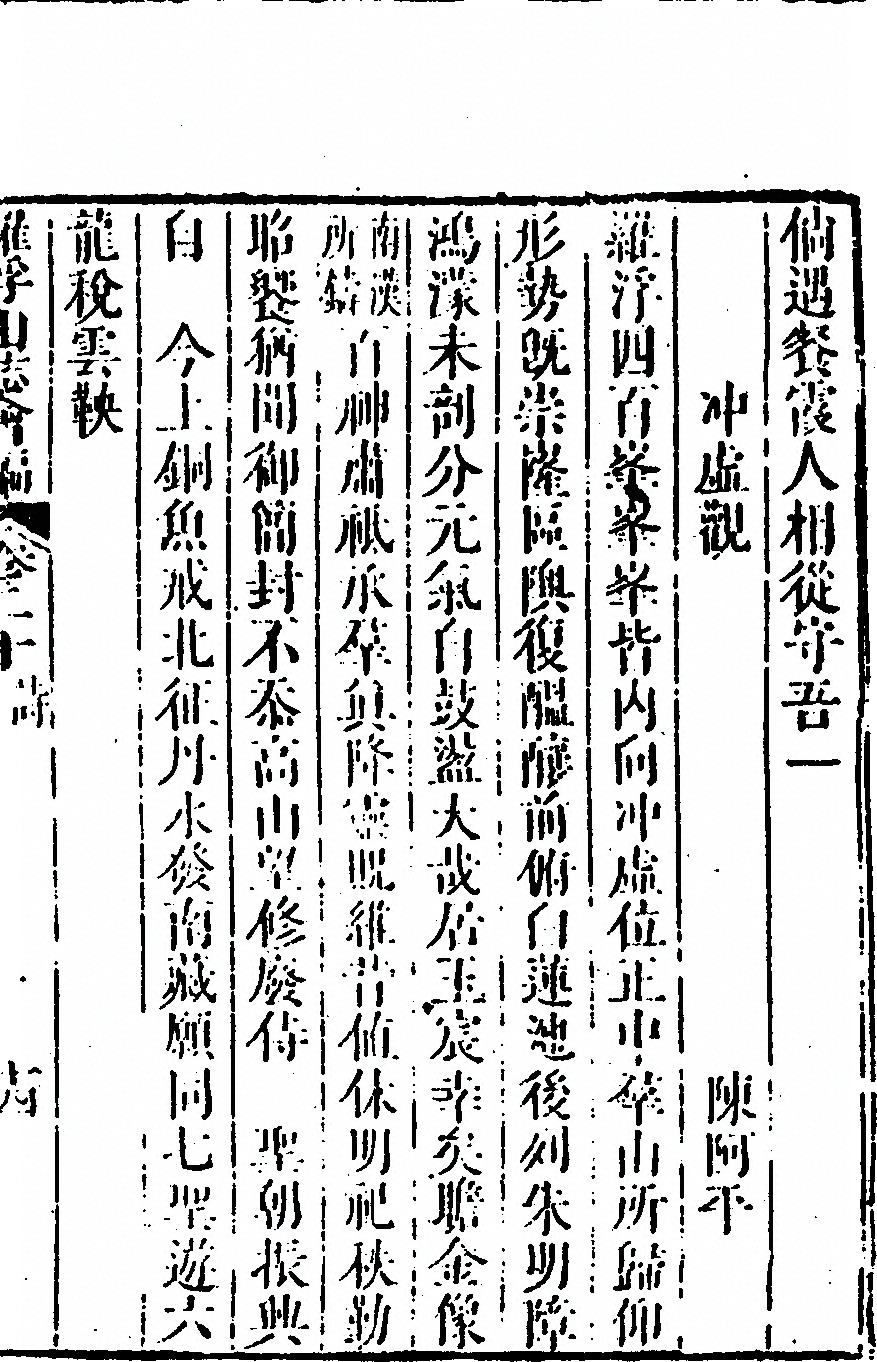 倘遇餐霞人相從守吾一
冲虛觀 陳阿平
羅浮四百峯峯峯皆内向冲虛位正中羣山所歸仰
形勢既崇隆區隩復醖釀前俯白蓮池後列朱明障
鴻濛未剖分元氣自鼓盪大哉居玉宸幸矣瞻金像
南漢所鑄百神肅祗承羣真降靈貺維昔值休明祀秩勒
昭 猶聞御簡封不泰高山望修廢待 聖朝振興
自 今上銅魚戒北征丹水發南藏願同七聖遊六
龍稅雲鞅
羅浮山志會編 卷二十 詩 六